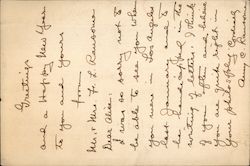 Greetings
and a Happy New Year
to you and yours
from
Mr. & Mrs. F. L. Ransome
Dear Alice:
I was so sorry not to
be able to see you when
you were in Los Angeles
last January and to
be handicapped in the
writing of letters. I think
of you often and believe
you are quite right in
your philosophy. Cordially
A. C. R.